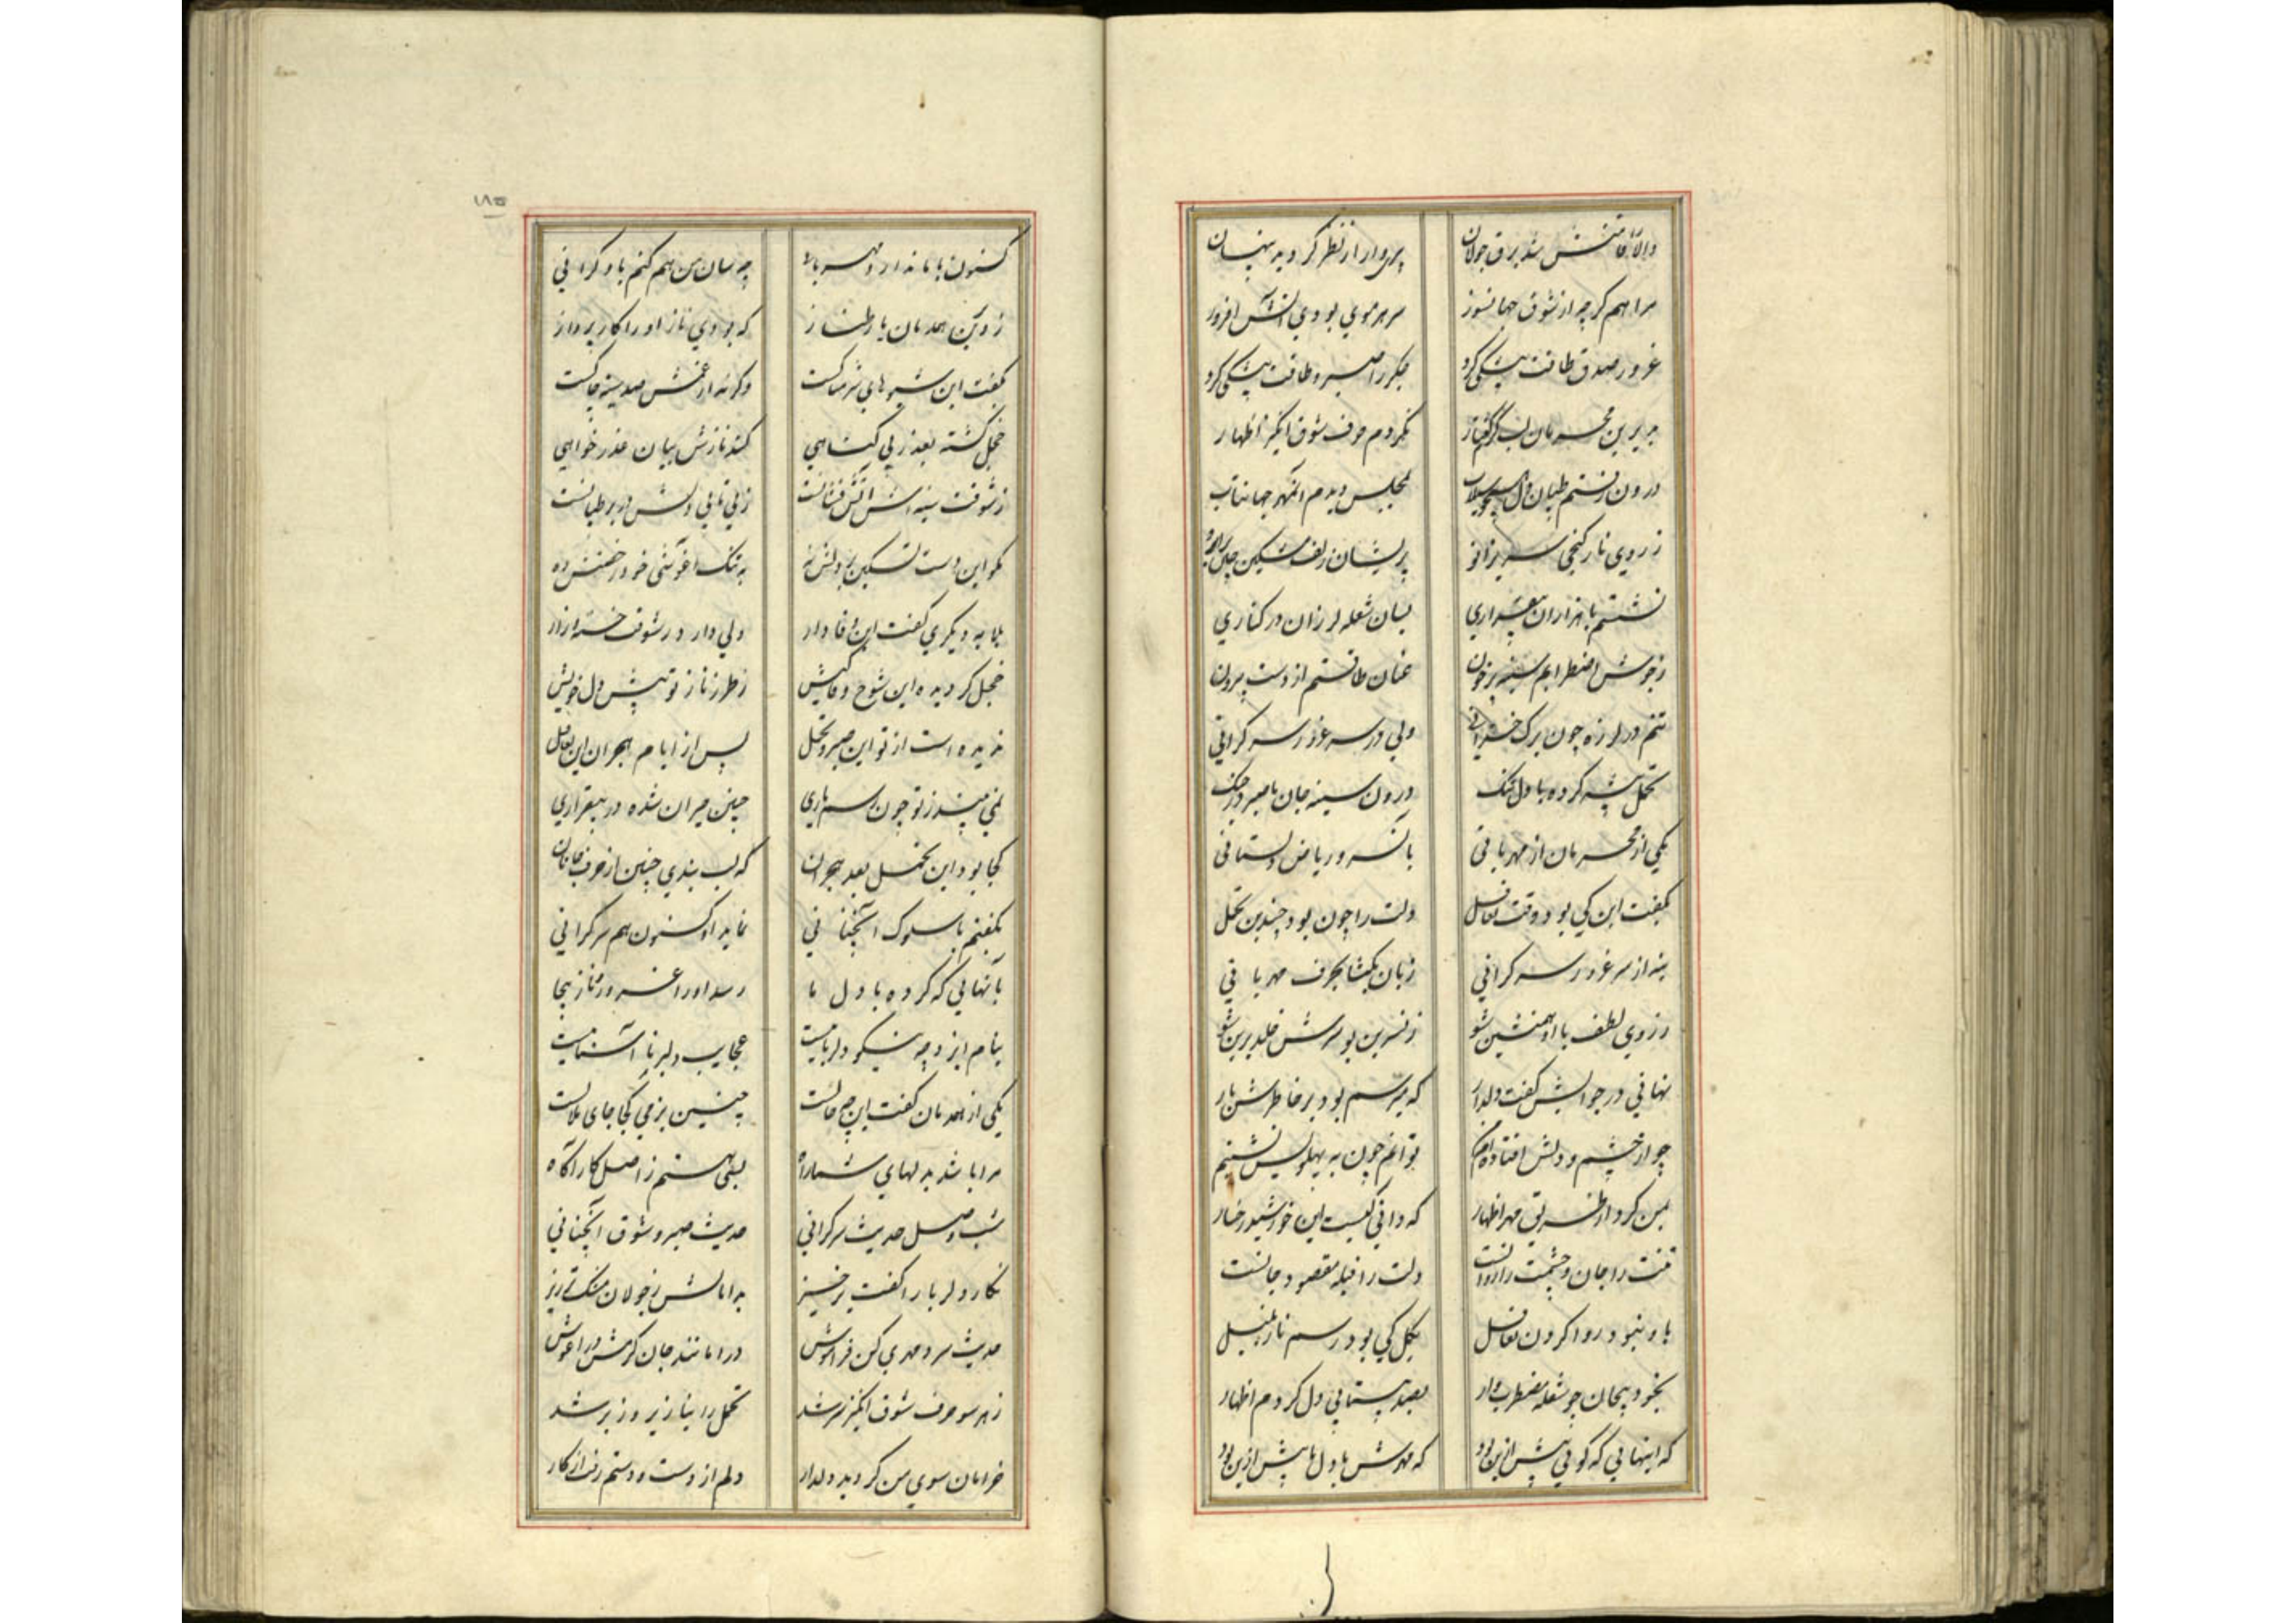 پری وار از نظر کردید پنهان
مرا هم کرچه از شوق جهانسوز سر هر موی بودی آتش افروز
غرور صدق طاقت پیشکی کرد جکر را صبر و طاقت پیشکی کرد
نکردم حرف شوق انکیز اظهار
بمجلس دیدم آنمهر جهانتاب
ز روی ناز کنجی سر بزانو پریشان زلف مشکین
نشستم با هزاران بیقراری بسان شعله لرزان در کناری
ز جوش اضطرابم سینه پر خون عنان طاقتم از دست بیرون
تنم در لرزه چون برک خزانی ولی در سر غرور سرکرانی
تحمل پیشه کرده با دل تنک درون سینه جان با صبر در جنک
یکی از محرمان از مهربانی بآن سرو ریاض دلستانی
بکفت این کی بود وقت تغافل دلت را چون بود چندین تحمل
بنه از سر غرور سرکرانی زبان بکشا بحرف مهربانی
ز روی لطف با او همنشین شو ز نسرین بو سرش خلد برین شو
نهانی در جوابش کفت دلدار که میرسم بود بر خاطرش بار
چو از چشم و دلش افتاده ام من توانم چون به پهلویش نشینم
بمن کرد از طریق مهر اظهار که دانی کیست این خورشید رخسار
تنت را جان و چشمت را روانست دلت را قبله مقصود جانست
با و نبود روا کردن تغافل بکل کی بود رسم ناز بلبل
بخود پیچان چو شعله مضطرب وار بصد بیتابی دل کردم اظهار
که اینهایی که کویی پیش ازین بود که مهرش با دل ما پیش ازین بود
۱۸۵
کنون با ما ندارد مهربانی چه سان من هم کنم با او کرانی
ز دیکر همدمان یار طناز که بودی ناز او را کار پرداز
بکفت این شیوهایی شرمناکست وکرنه از غمش صد سینه چاکست
خجل کشته بعذر بی کناهی کند نازش بیان عذر خواهی
ز شوقت سینه اش آتش فشانست ز بی تابی دلش در بر طپانست
بکو این دست تسکین بر دلش نه به تنک آغوشی خود رخصتش ده
بما به دیکری کفت این وفادار دلی دارد ز شوقت خسته و زار
خجل کردیده این شوخ وفا کیش ز طرز ناز تو پیش دل خویش
ندیده است از تو این صبر و تحمل پس از ایام هجران این تغافل
نمی بیند ز تو چون رسم یاری چنین حیران شده در بیقراری
کجا بود این تحمل بعد هجران که لب بندی چنین از حرف جانان
بکفتم با سلوک آنچنانی نماید او کنون هم سرکرانی
بآنهایی که کرده با دل ما رسد او را غرور ناز بیجا
بنام ایزد چه نیکو دلرباییست عجایب دلبر نا آشناییست
یکی از همدمان کفت این چه حالست چنین بزمی کجا جای ملالست
مرا باشد بدلهای شما راه بسی هستم ز اصل کار آکاه
شب وصل حدیث سرکرانی حدیث صبر و شوق آنچنانی
نکار دلربا را کفت برخیز
حدیث سرد مهری کن فراموش درا مانند جان کرمش در آغوش
ز هر سو حرف شوق انکیز سر شد تحمل را بنا زیر و زبر شد
خرامان سوی من کردید دلدار دلم از دست و دستم رفت از کار